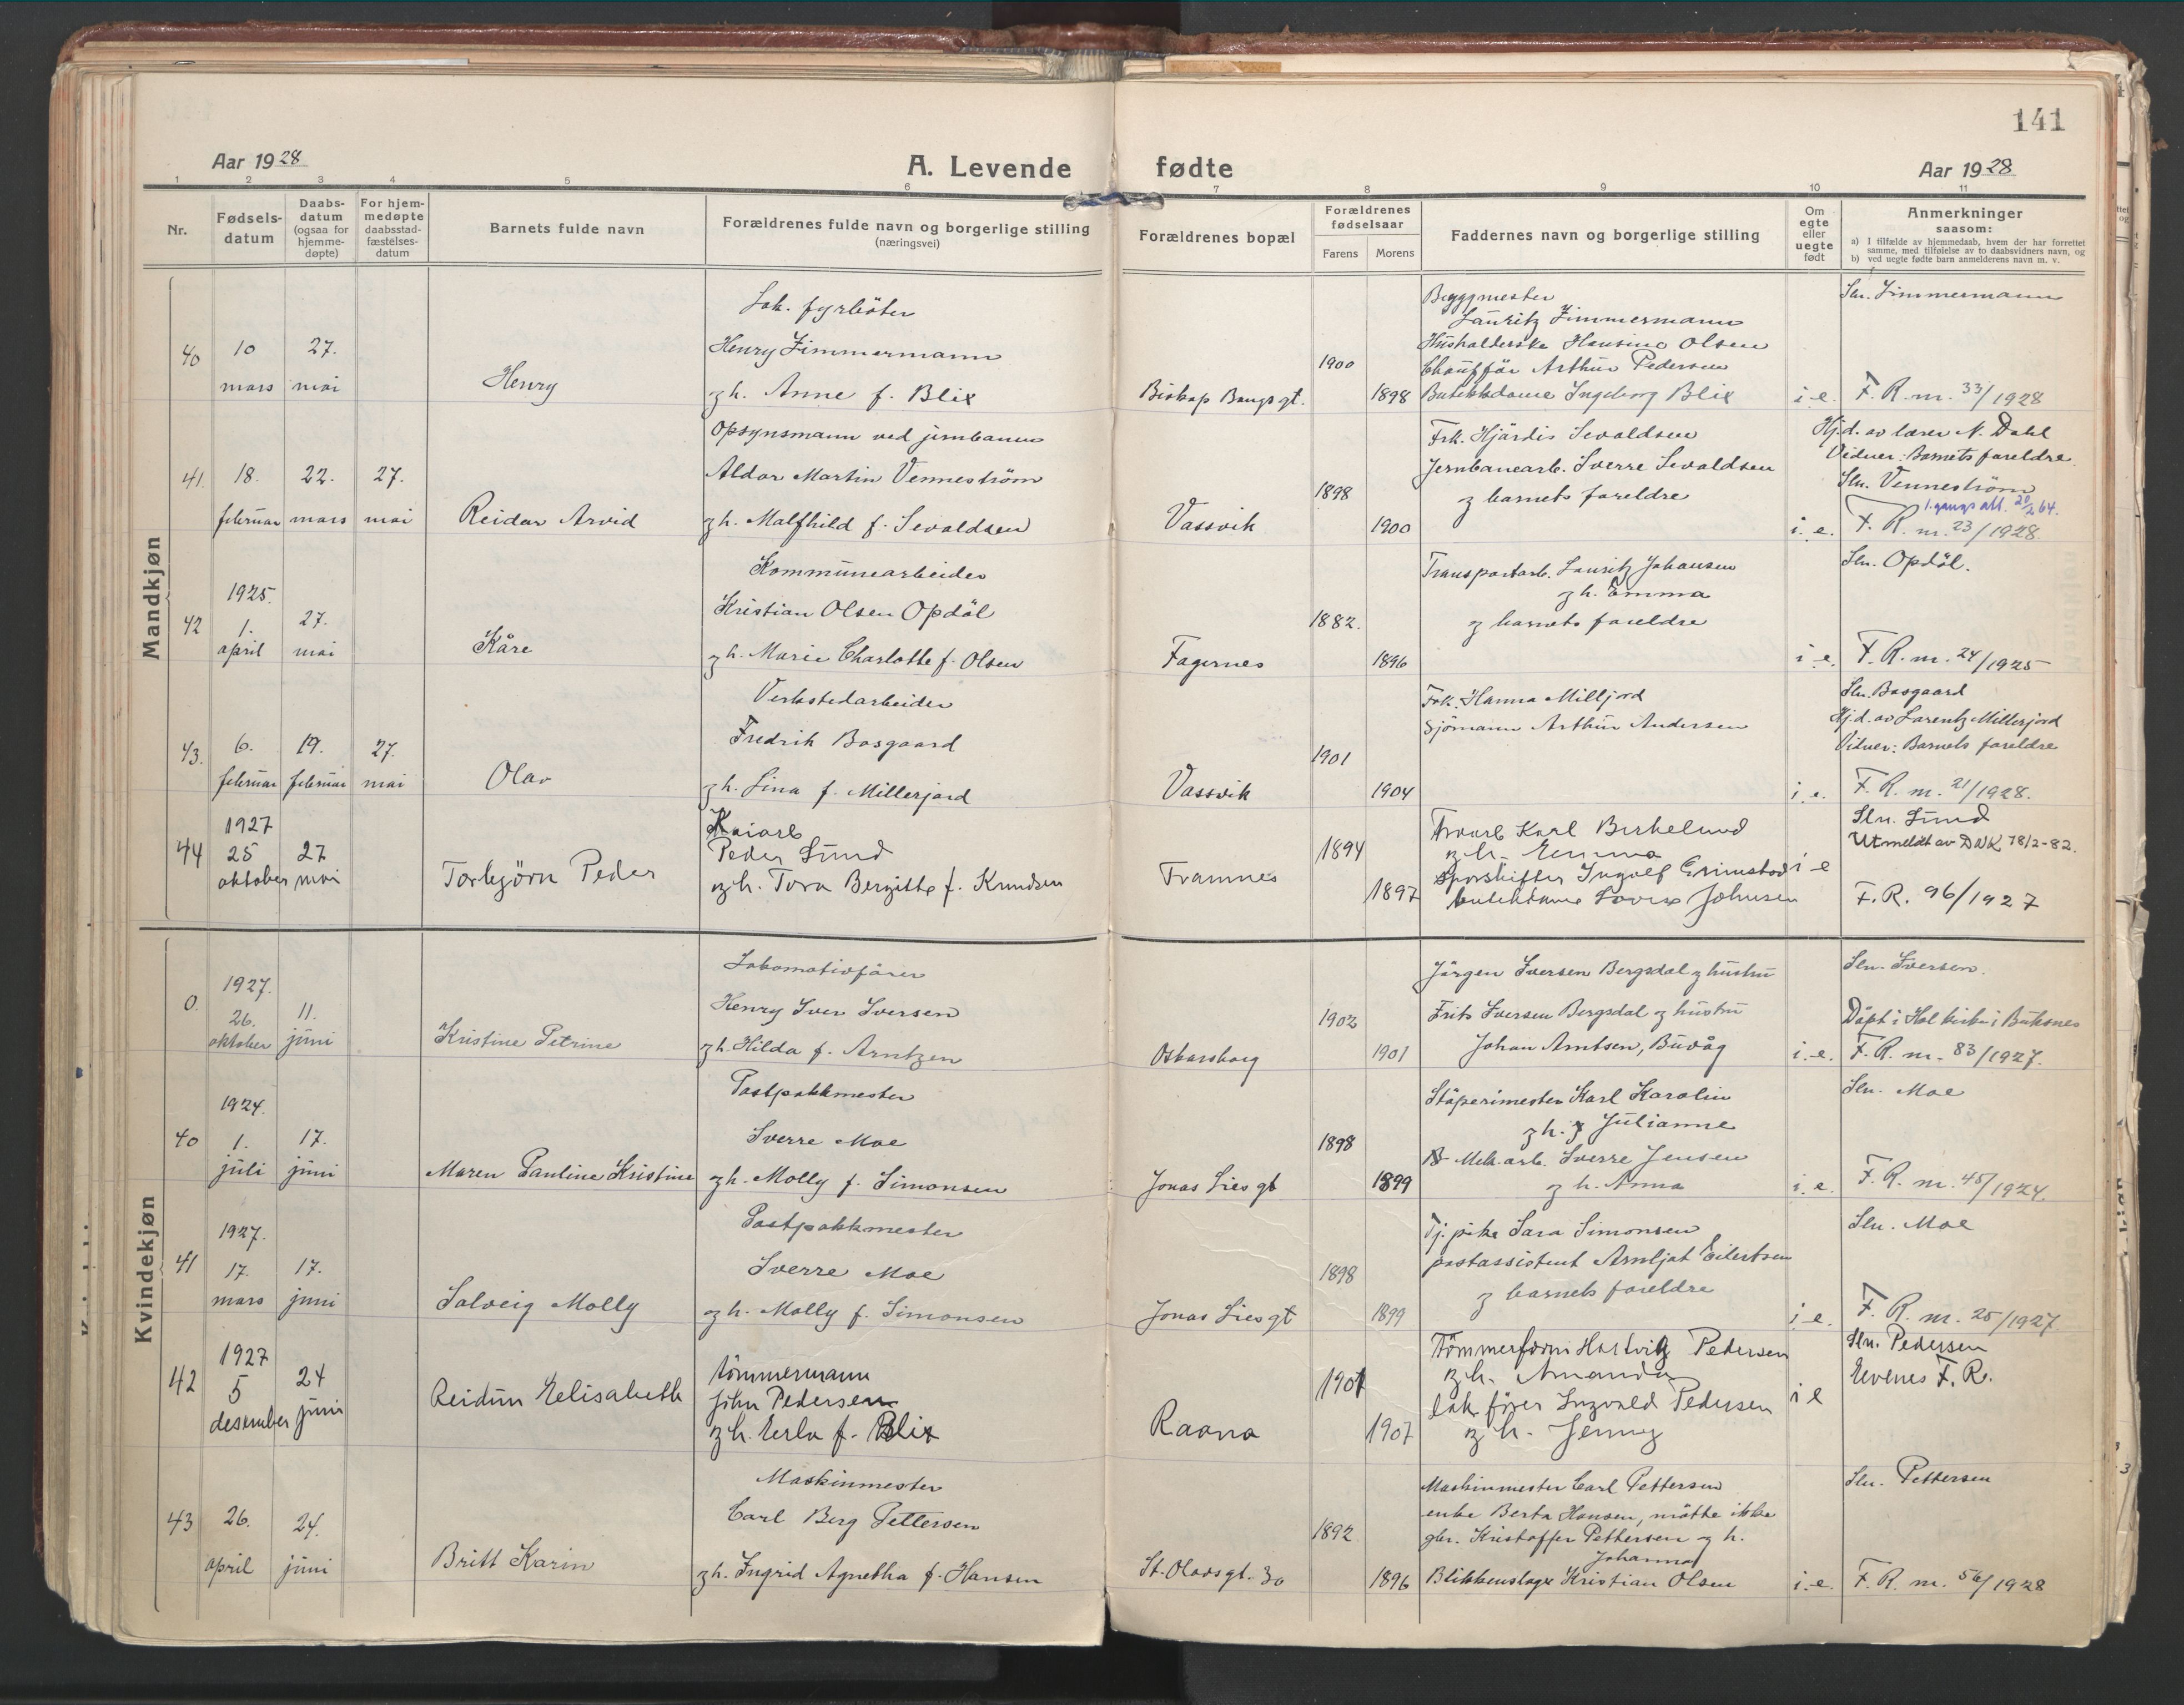 141
Aar 1928
A. Levende fødte
Aar 1928
1 2 3 4 5 6 7 8 9 10 11
Nr.
Fødsels-
datum
Daabs-
datum
(ogsaa for
hjemme-
døpte)
For hjem-
medøpte
daabsstad-
fæstelses-
datum
Barnets fulde navn
Forældrenes fulde navn og borgerlige stilling
(næringsvei)
Forældrenes bopæl
Forældrenes
fødselsaar
Farens Morens
Faddernes navn og borgerlige stilling
Om
egte
eller
uegte
født
Anmerkninger
saasom:
a) I tilfælde av hjemmedaab, hvem der har forrettet
samme, med tilføielse av to daabsvidners navn, og
b) ved uegte fødte barn anmelderens navn m. v.
Mandkjøn
40
10
mars
27.
mai
Henry
Lok. fyrböter
Henry Zimmermann
og h. Anne f. Blix
Biskop Bangs gt.
1900
1898
Byggmester
Lauritz Zimmermann
Husholderske Hansine Olsen
Chaufför Arthur Pedersen
Butikkdame Ingeborg Blix
i. e.
Sln. Zimmermann
F. R. nr. 33/1928
41.
18.
februar
22.
mars
27.
mai
Reidar Arvid
Opsynsmann ved jernbanen
Aldor Martin Venneström
og h. Malfhild f. Sevaldsen
Vassvik
1898
1900
Frk. Hjördis Sevaldsen
Jernbanearb. Sverre Sevaldsen
og barnets foreldre
i. e.
Hj.d. av lærer N. Dahl
Vidner: Barnets foreldre
Sln. Venneström
1. gangs att. 20/2 64.
F. R. nr. 23/1928.
42
1925.
1.
april
27.
mai
Kåre
Kommunearbeider
Kristian Olsen Opdöl
og h. Marie Charlotte f. Olsen
Fagernes
1882.
1896
Transportarb. Lauritz Johansen
og h. Emma
og barnets foreldre
i e.
Sln. Opdöl.
F. R. nr. 24/1925
43.
6.
februar
19.
februar
27.
mai
Olav
Verkstedarbeider
Fredrik Bosgaard
og h. Lina f. Millerjord
Vassvik
1901
1904
Frk. Hanna Milljord
Sjömann Arthur Andersen
i. e.
Sln. Bosgaard
Hj.d. av Lorentz Millerjord
Vidner: Barnets foreldre
F. R. nr. 21/1928.
44
1927
25
oktober
27
mai
Torbjörn Peder
Kaiarb
Peder Lund
og h. Tora Bergitte f. Knudsen
Framnes
1894
1897
Karl Birkelund
og h. Emma
Sporskifter Ingolf Grimstad
butikkdame Johnsen
i e
Sln. Lund
Utmeldt av DNK 18/2-82.
F. R. 96/1927
Kvindekjøn
0.
1927.
26.
oktober
11.
juni
Kristine Petrine
Lokomotivförer
Henry Iver Iversen
og h. Hilda f. Arntzen
Oskarsborg
1902
1901
Jörgen Iversen Bergsdal og hustru
Frits Iversen Bergsdal og hustru
Johan Arntsen, Buvåg
i. e.
Sln. Iversen.
Döpt i Hol kirke i Buksnes
F. R. nr. 83/1927.
40
1924.
1.
juli
17.
juni
Maren Pauline Kristine
Postpakkmester
Sverre Moe
og h. Molly f. Simonsen
Jonas Lies gt
1898
1899
Stöperimester Karl Karolin
og h. Julianne
Mek. arb. Sverre Jensen
og h. Anna
i. e.
Sln. Moe
F. R. nr. 45/1924.
41
1927.
17.
mars
17.
juni
Solveig Molly
Postpakkmester
Sverre Moe
og h. Molly f. Simonsen
Jonas Lies gt
1898
1899
Tj. pike Sara Simonsen
postassistent Arnljot Eilertsen
og barnets foreldre
i. e.
Sln. Moe
F. R. nr. 25/1927
42
1927
5
desember
24
juni
Reidun Elisabeth
tömmermann
John Pedersen
og h. Erla f. Blix
Raana
1901
1907
Tömmerform Hartvig Pedersen
og h. Amanda
lok förer Ingvald Pedersen
og h. Jenny
i e
Sln. Pedersen
Evenes F. R.
43
26.
april
24.
juni
Britt Karin
Maskinmester
Carl Berg Pettersen
og h. Ingrid Agnetha f. Hansen
St. Olavsgt. 30
1892
1896
Maskinmester Carl Pettersen
enke Berta Hansen, mötte ikke
gbr. Kristoffer Pettersen og h.
Johanna
Blikkenslager Kristian Olsen
i. e.
Sln. Pettersen
F. R. nr. 56/1928